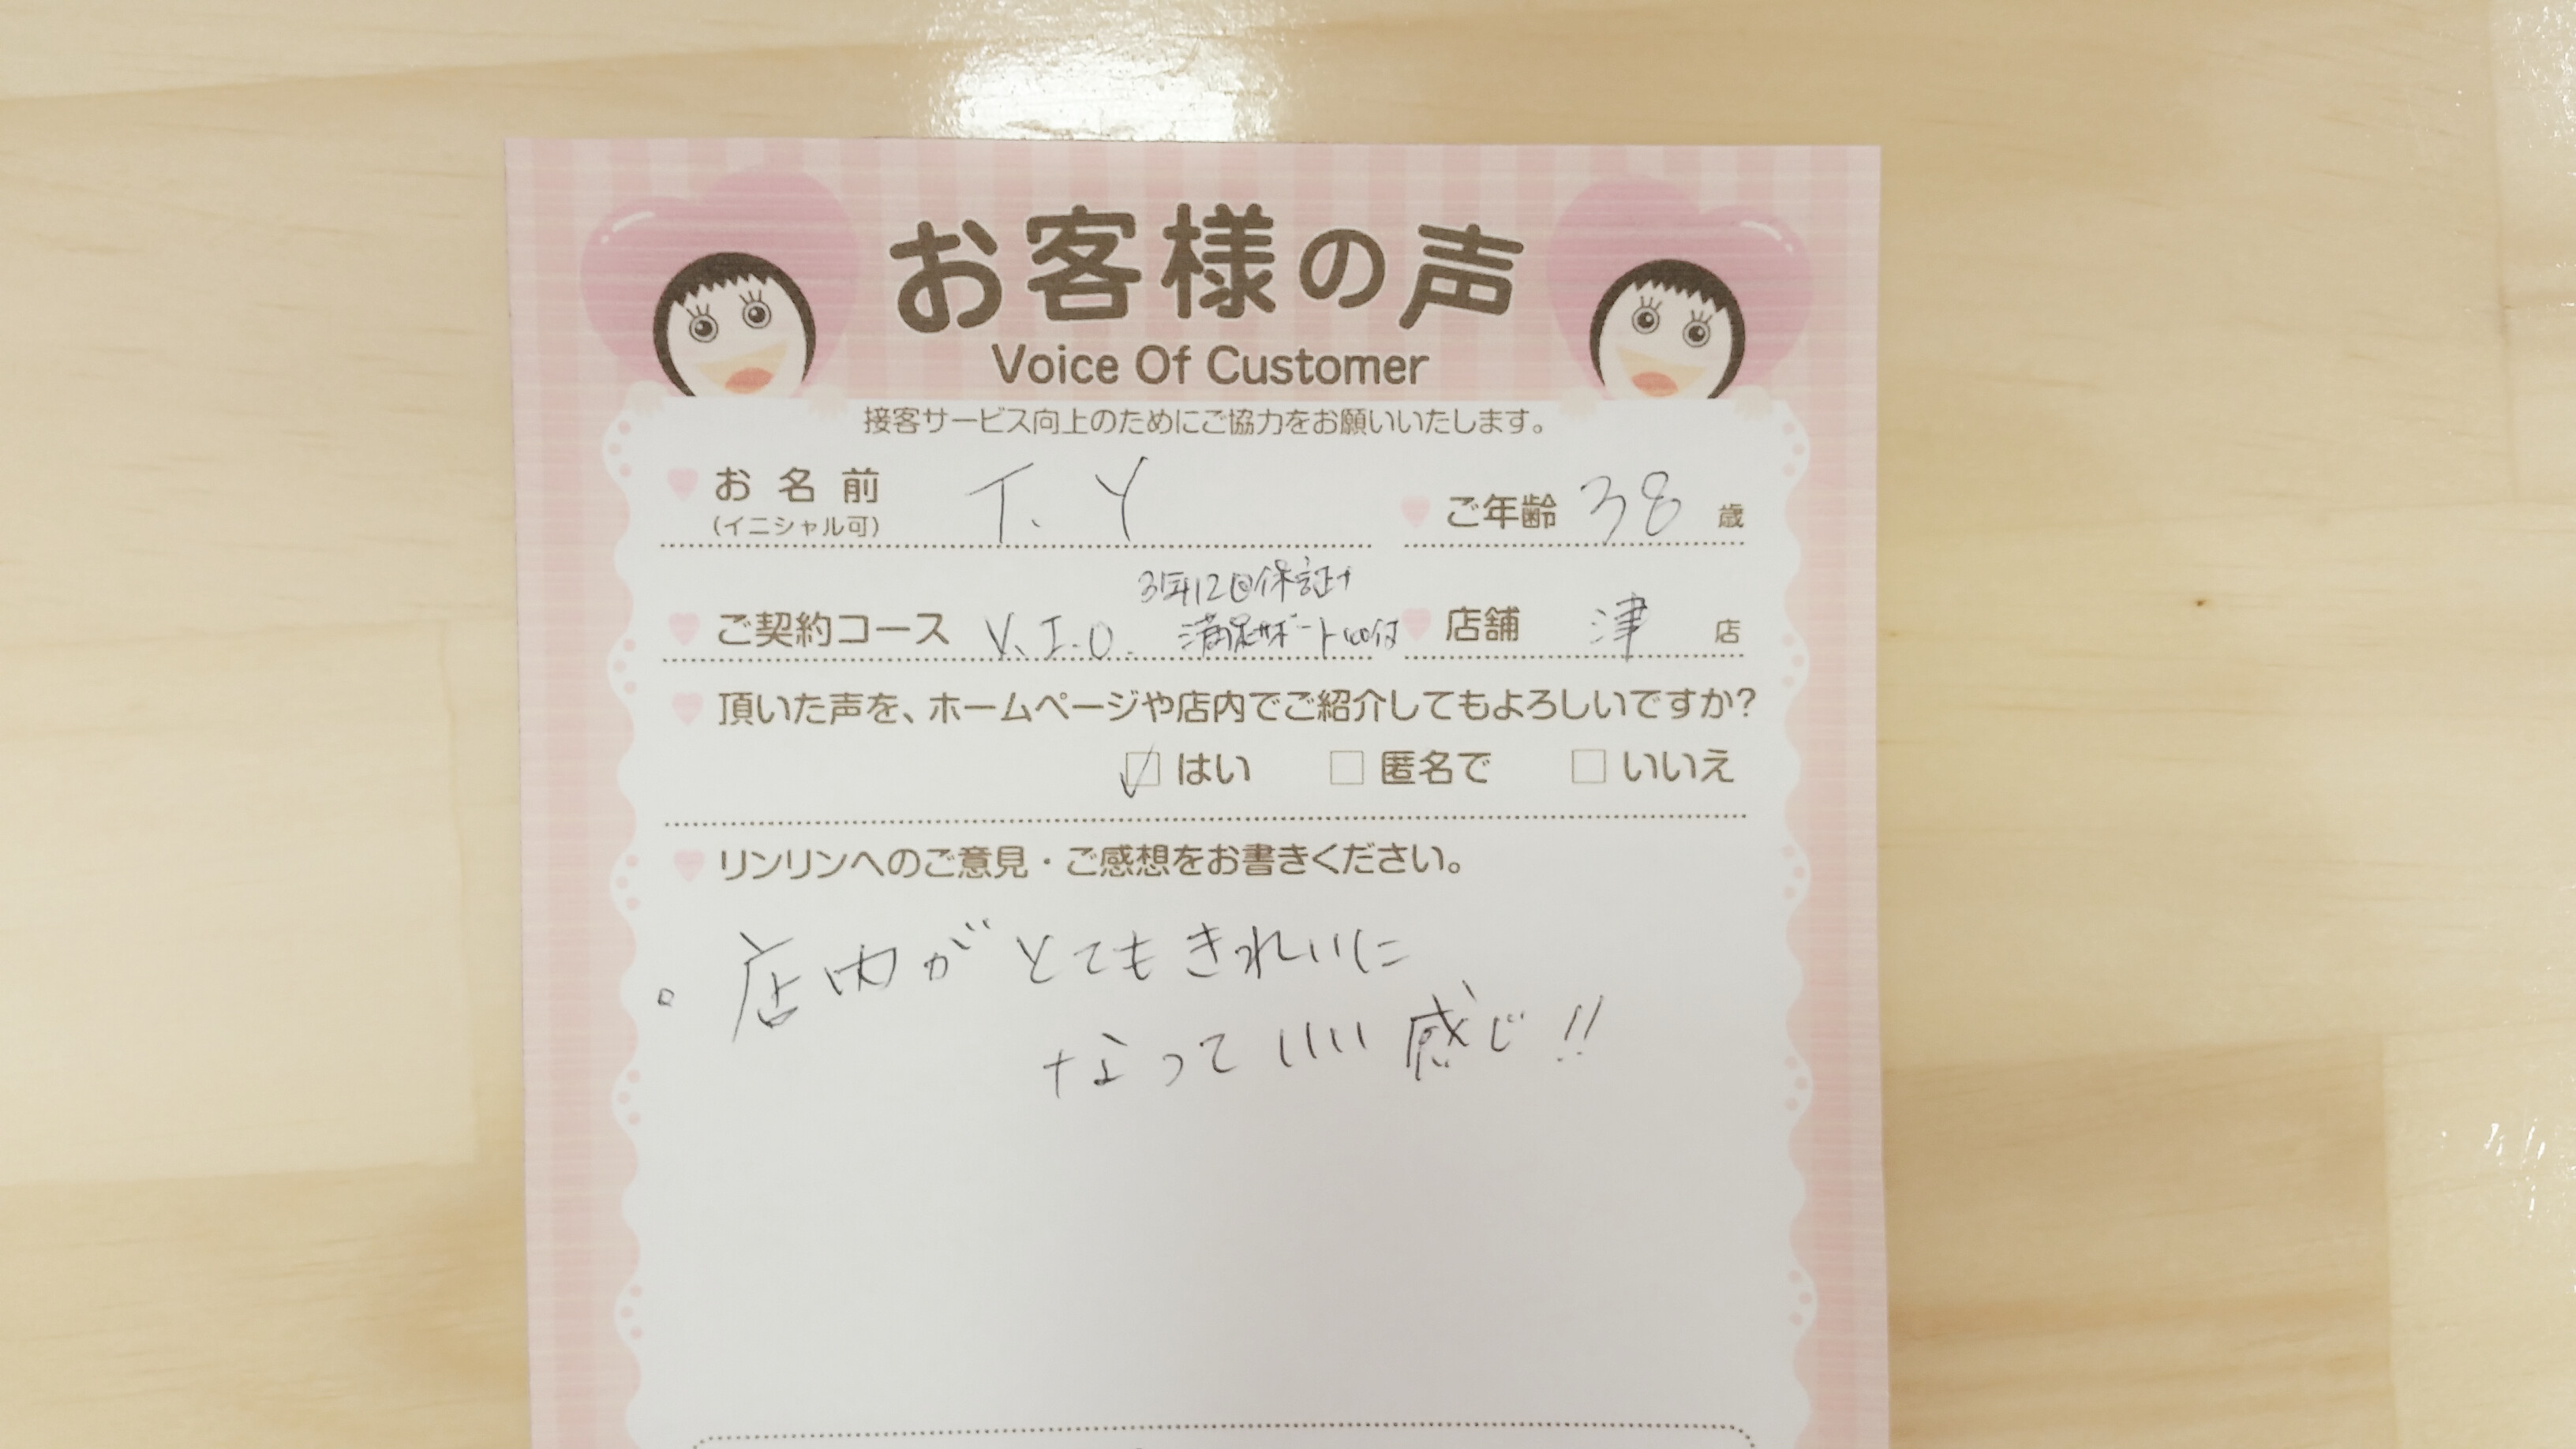 お客様の声
Voice Of Customer
接客サービス向上のためにご協力をお願いいたします。
お名前 T.Y ご年齢 38 歳
(イニシャル可)
3年12回保証+
ご契約コース V.I.O. 満足サポート 付 店舗 津 店
頂いた声を、ホームページや店内でご紹介してもよろしいですか?
はい 匿名で いいえ
リンリンへのご意見・ご感想をお書きください。
。店内がとてもきれいに
なっていい感じ!!